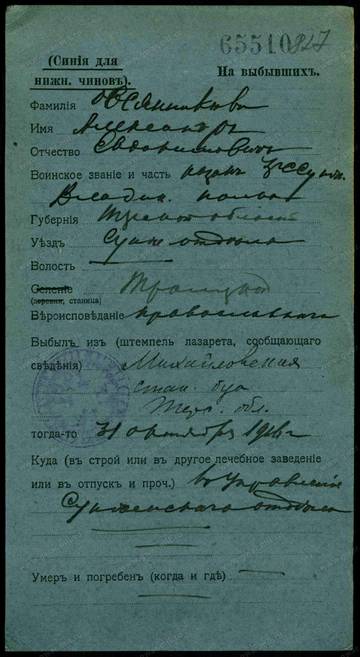 65510
847
(Синія для
нижн. чиновъ).
На выбывшихъ.
Фамилія Овсянниковъ
Имя Александръ
Отчество Евдокимовичъ
Воинское званіе и часть казак 3 Сунж.
Владик. полка
Губернія Терской области
Уѣздъ Сунж. отдѣла
Волость
Селеніе Троицкой
(деревня, станица)
Вѣроисповѣданіе православнаго
Выбылъ изъ (штемпель лазарета, сообщающаго
свѣдѣнія) Михайловская
стан.
Терс. обл.
тогда-то 31 октября 1916 г
Куда (въ строй или въ другое лечебное заведеніе
или въ отпускъ и проч.) въ Управленіе
Сунженскаго отдѣла
Умеръ и погребенъ (когда и гдѣ)